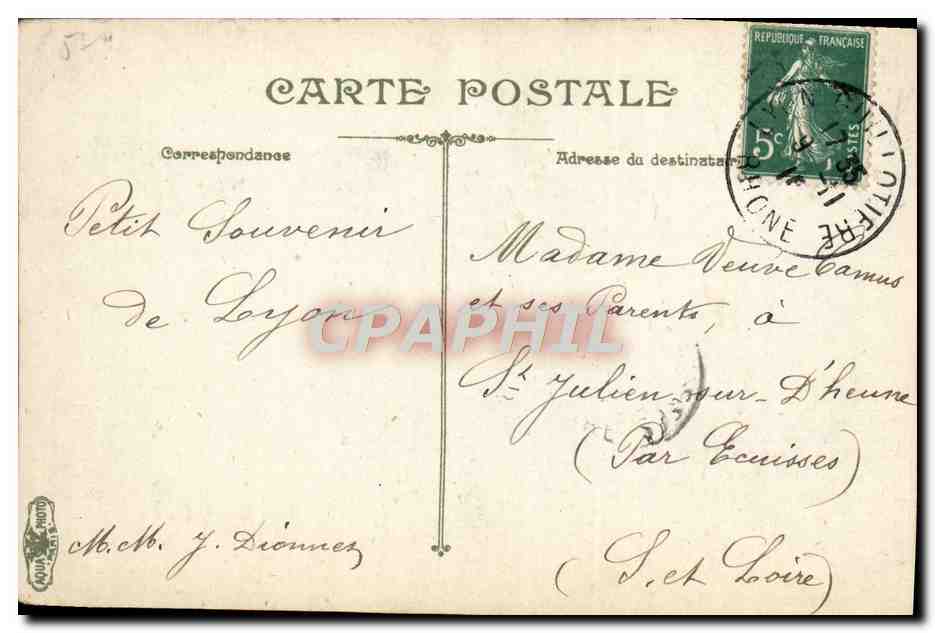 5
RÉPUBLIQUE FRANÇAISE
5c
POSTES
CARTE POSTALE
Correspondance
Adresse du destinatai
RHONE
Petit Souvenir
de Lyon
Madame Veuve Camus
et ses Parents, à
St Julien-sur-D'heune
(Par Ecuisses)
(S. et Loire)
M.M. J. Dionnet
CPAPHIL
AQUA PHOTO